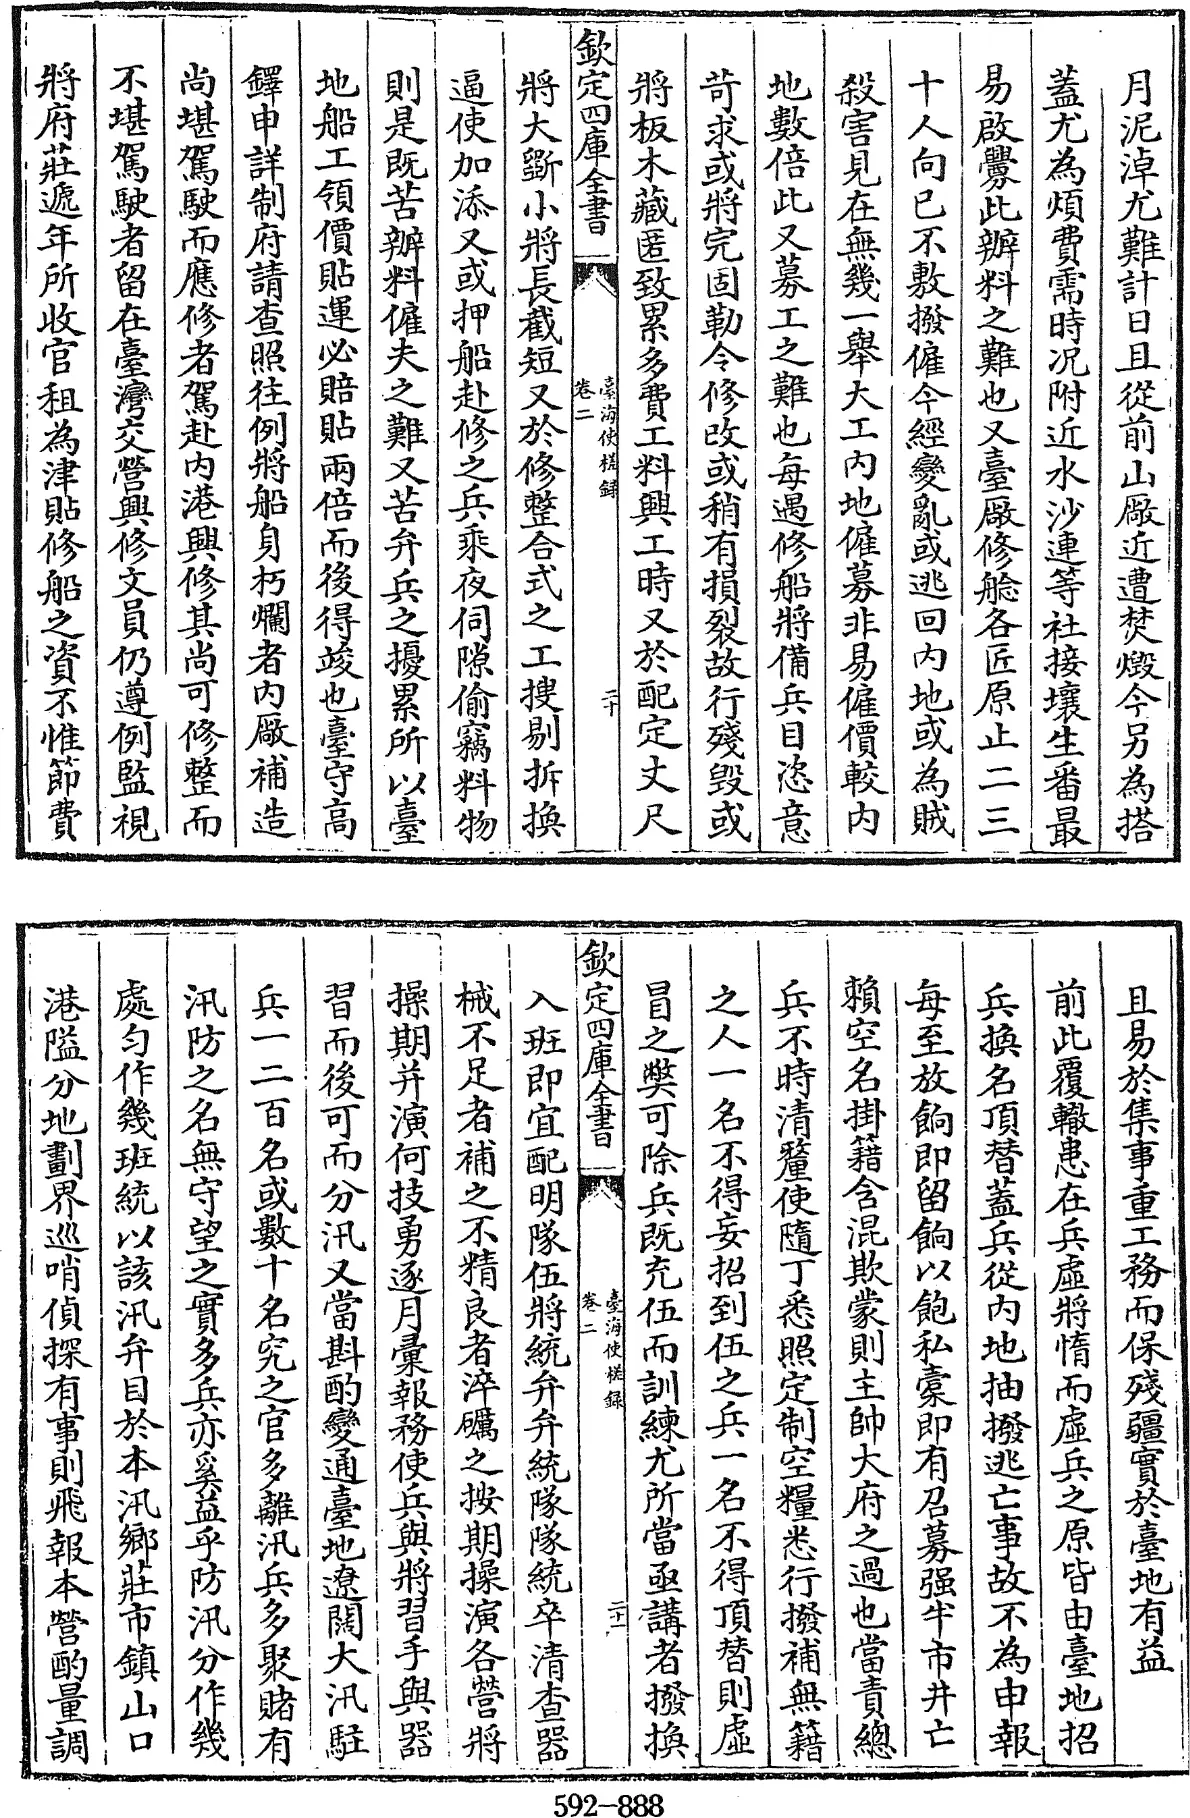 月泥淖尤難計日且從前山廠近遭焚燬今另為搭
蓋尤為煩費需時况附近水沙連等社接壤生番最
易啟釁此辦料之難也又臺廠修艌各匠原止二三
十人向已不敷撥僱今經變亂或逃回内地或為賊
殺害見在無幾一舉大工内地僱募非易僱價較内
地數倍此又募工之難也每遇修船將備兵目恣意
苛求或將完固勒令修改或稍有損裂故行殘毁或
將板木藏匿致累多費工料興工時又於配定丈尺
欽定四庫全書
臺海使槎録
卷二
二十
將大斵小將長截短又於修整合式之工搜剔拆換
逼使加添又或押船赴修之兵乘夜伺隙偷竊料物
則是既苦辦料僱夫之難又苦弁兵之擾累所以臺
地船工領價貼運必賠貼兩倍而後得竣也臺守高
鐸申詳制府請查照往例將船身朽爛者内廠補造
尚堪駕駛而應修者駕赴内港興修其尚可修整而
不堪駕駛者留在臺灣交營興修文員仍遵例監視
將府莊遞年所收官租為津貼修船之資不惟節費
且易於集事重工務而保殘疆實於臺地有益
前此覆轍患在兵虛將惰而虛兵之原皆由臺地招
兵換名頂替蓋兵從内地抽撥逃亡事故不為申報
每至放餉即留餉以飽私橐即有召募强半市井亡
賴空名掛籍含混欺蒙則主帥大府之過也當責總
兵不時清釐使隨丁悉照定制空糧悉行撥補無籍
之人一名不得妄招到伍之兵一名不得頂替則虛
冒之獘可除兵既充伍而訓練尤所當亟講者撥換
欽定四庫全書
臺海使槎録
卷二
二十一
入班即宜配明隊伍將統弁弁統隊隊統卒清查器
械不足者補之不精良者淬礪之按期操演各營將
操期并演何技勇逐月彙報務使兵與將習手與器
習而後可而分汛又當斟酌變通臺地遼闊大汛駐
兵一二百名或數十名究之官多離汛兵多聚賭有
汛防之名無守望之實多兵亦奚益乎防汛分作幾
處勻作幾班統以該汛弁目於本汛鄉莊市鎮山口
港隘分地劃界巡哨偵探有事則飛報本營酌量調
592-888